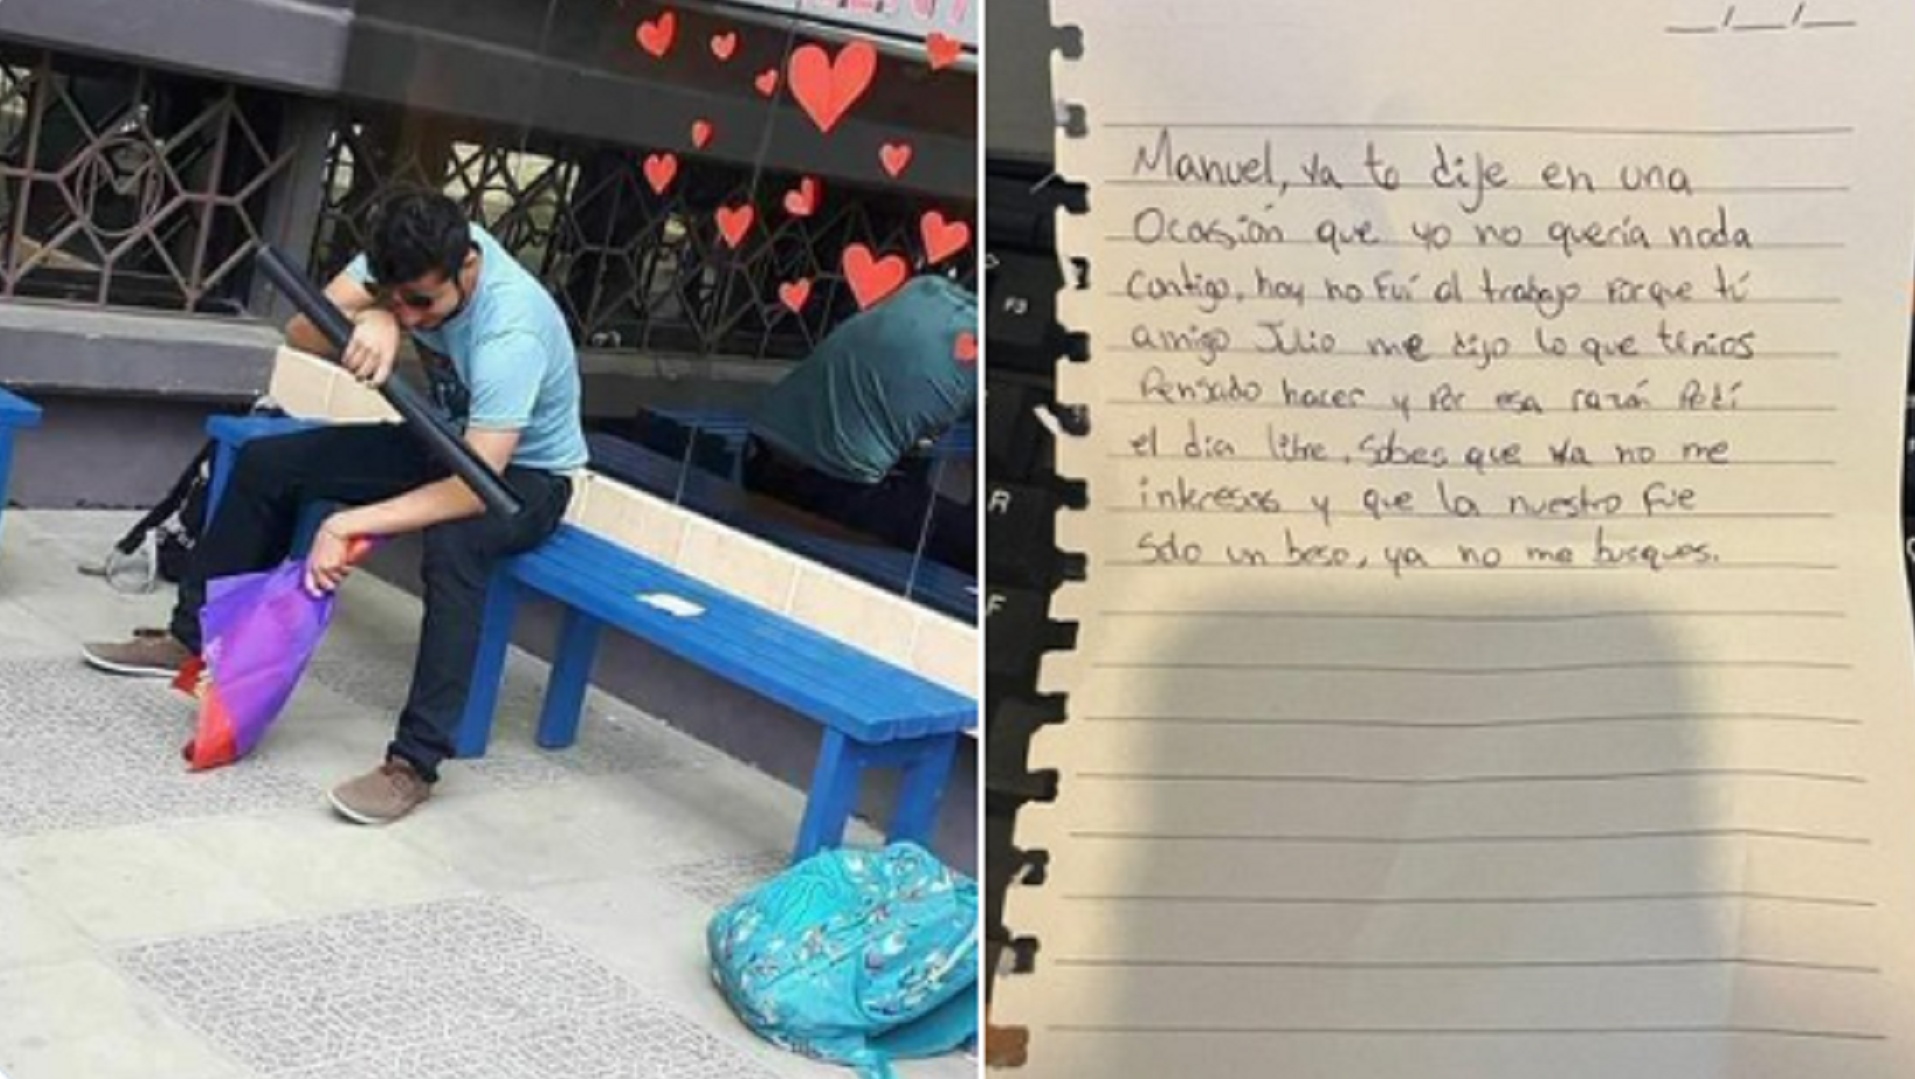 Manuel, ya te dije en una
Ocasión que yo no quería nada
contigo, hoy no fuí al trabajo porque tú
amigo Julio me dijo lo que tenias
Pensado hacer y por esa razón Pedí
el día libre. Sabes que ya no me
interesas y que lo nuestro fue
solo un beso, ya no me busques.
F3
R
F